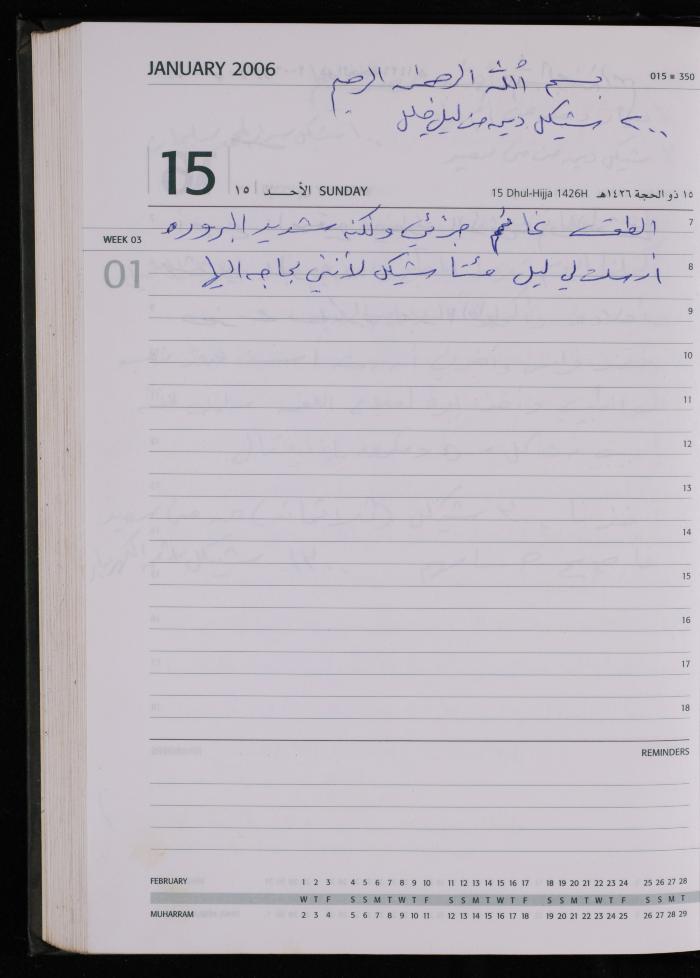 JANUARY 2006
015 ■ 350
بسم الله الرحمن الرحيم
٢٠٠ شيكل دين من ليل خليل
15 ١٥ الأحد SUNDAY
15 Dhul-Hijja 1426H ١٥ ذو الحجة ١٤٢٦هـ
WEEK 03
01
7
الطقس غائم جزئي ولكنه شديد البروده
8
أرسلت لي ليل مئتا شيكل لأنني بحاجه اليها
9
10
11
12
13
14
15
16
17
18
REMINDERS
FEBRUARY 1 2 3 4 5 6 7 8 9 10 11 12 13 14 15 16 17 18 19 20 21 22 23 24 25 26 27 28
W T F S S M T W T F S S M T W T F S S M T W T F S S M T
MUHARRAM 2 3 4 5 6 7 8 9 10 11 12 13 14 15 16 17 18 19 20 21 22 23 24 25 26 27 28 29